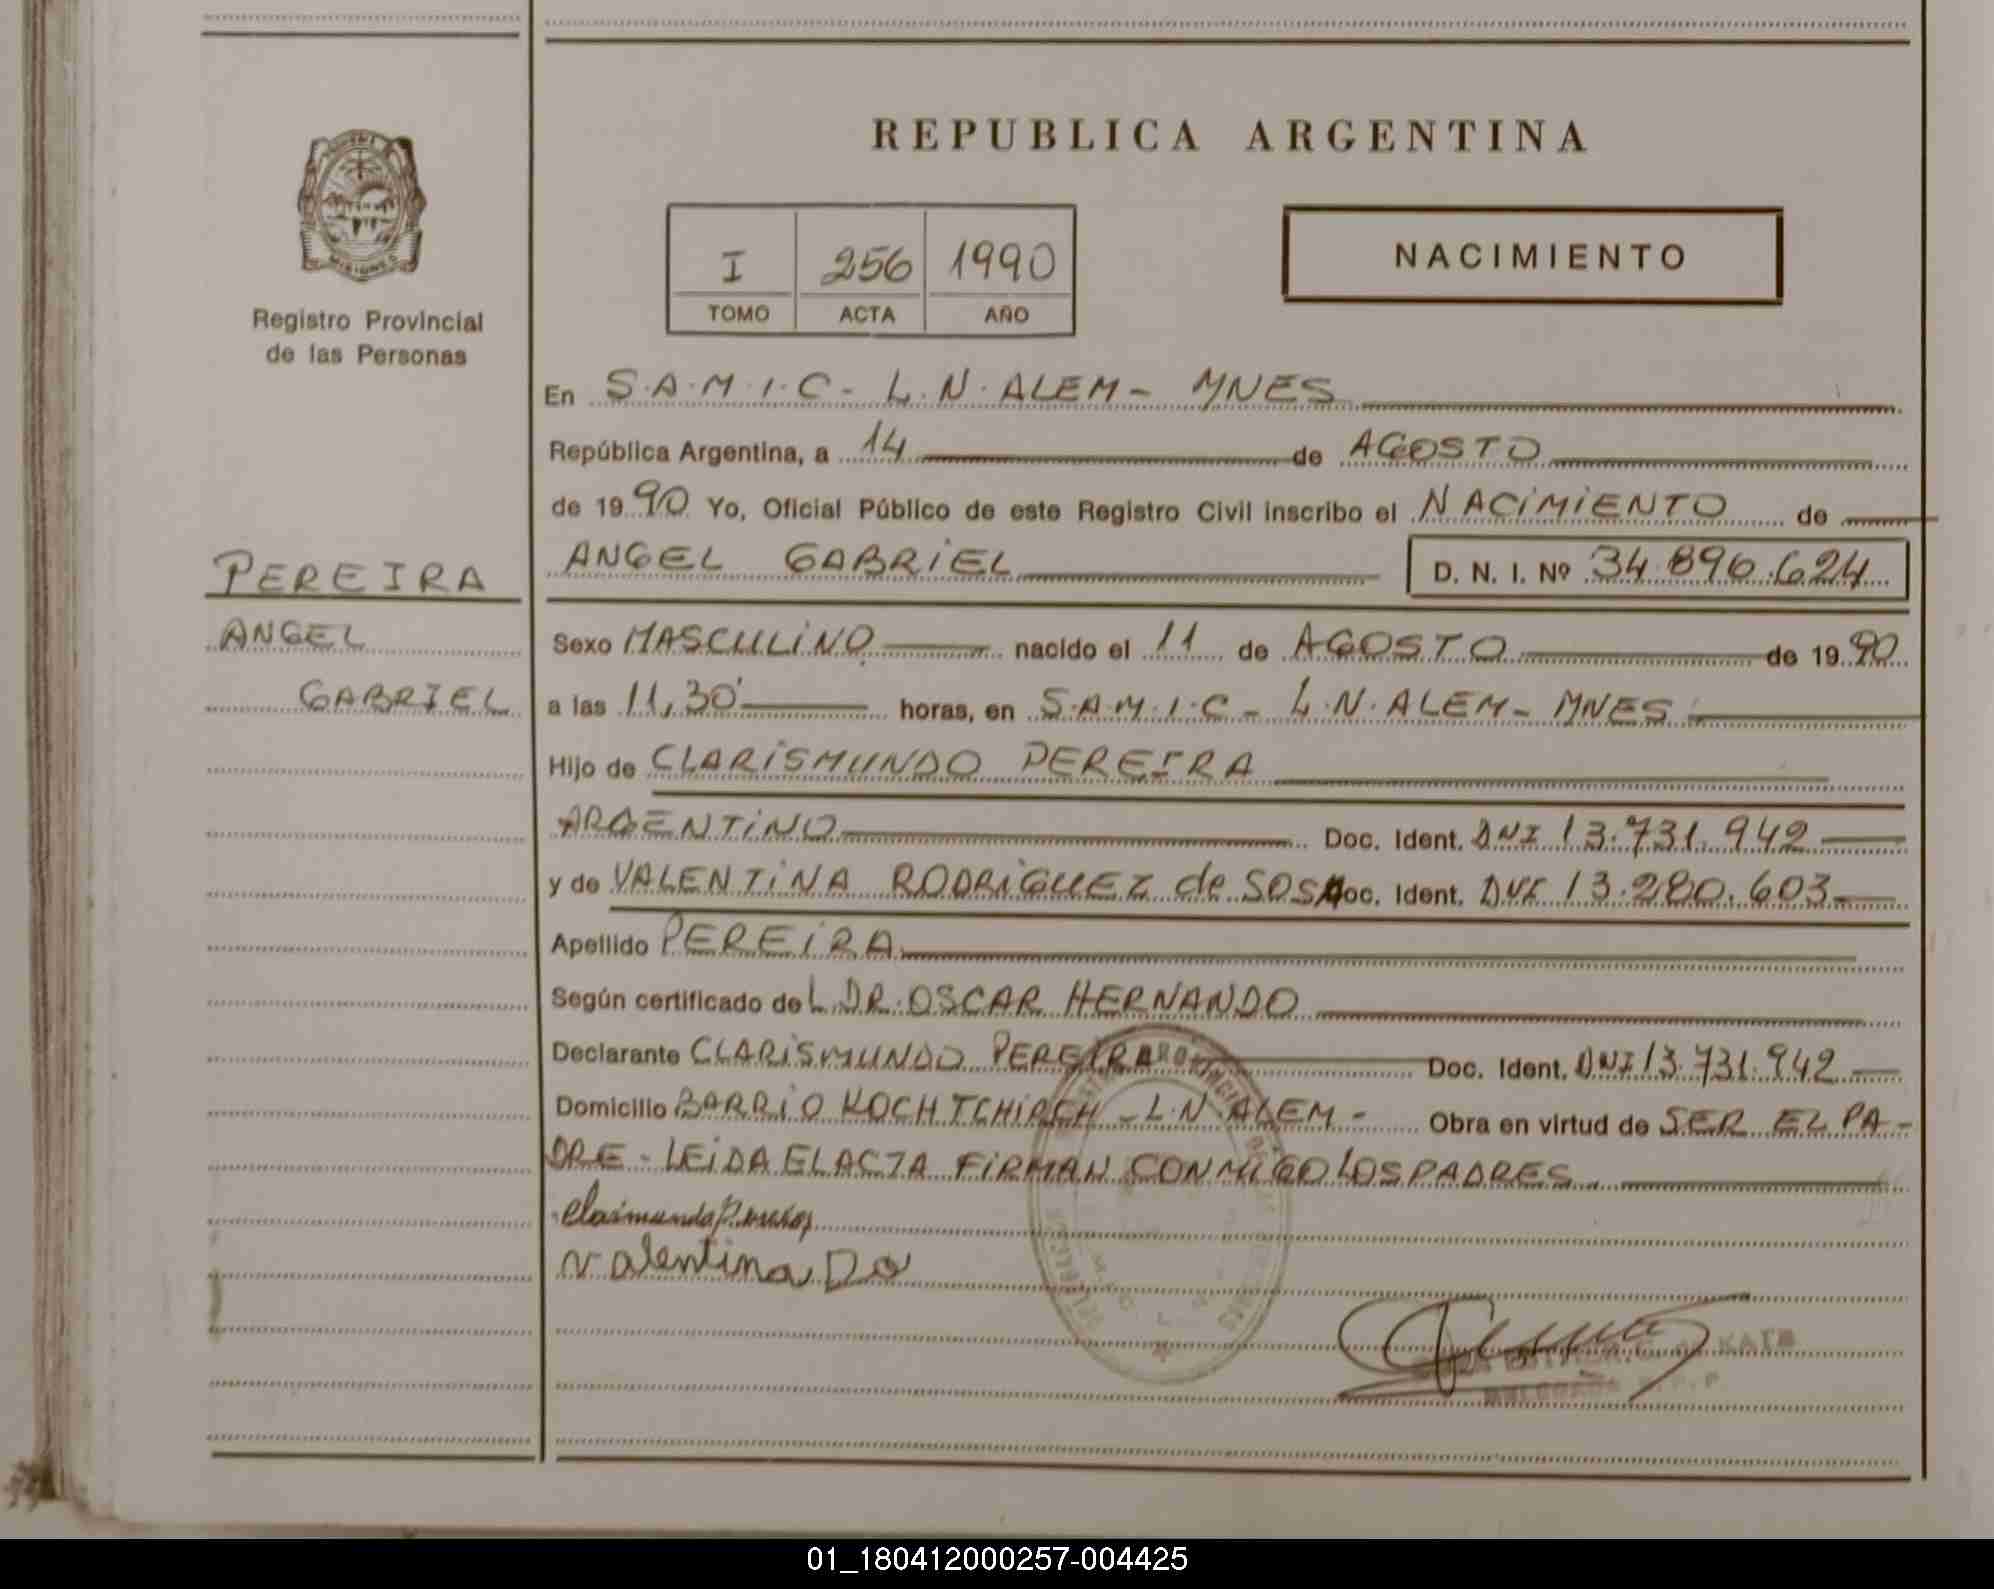 REPUBLICA ARGENTINA
MISIONES
Registro Provincial
de las Personas
I 256 1990
TOMO ACTA AÑO
NACIMIENTO
En S.A.M.I.C - L.N. ALEM - MNES
República Argentina, a 14 de AGOSTO
de 1990 Yo, Oficial Público de este Registro Civil inscribo el NACIMIENTO de
ANGEL GABRIEL D. N. I. Nº 34.896.624
PEREIRA
ANGEL
GABRIEL
Sexo MASCULINO nacido el 11 de AGOSTO de 1990
a las 11,30 horas, en S.A.M.I.C - L.N. ALEM - MNES
Hijo de CLARISMUNDO PEREIRA
ARGENTINO Doc. Ident. DNI 13.731.942
y de VALENTINA RODRIGUEZ de SOSA Doc. Ident. DNI 13.280.603
Apellido PEREIRA
Según certificado del DR. OSCAR HERNANDO
Declarante CLARISMUNDO PEREIRA Doc. Ident. DNI 13.731.942
Domicilio BARRIO - L.N. ALEM - Obra en virtud de SER EL PA-
DRE - LEIDA EL ACTA FIRMAN CONMIGO LOS PADRES
Valentina
KATZ
01_180412000257-004425